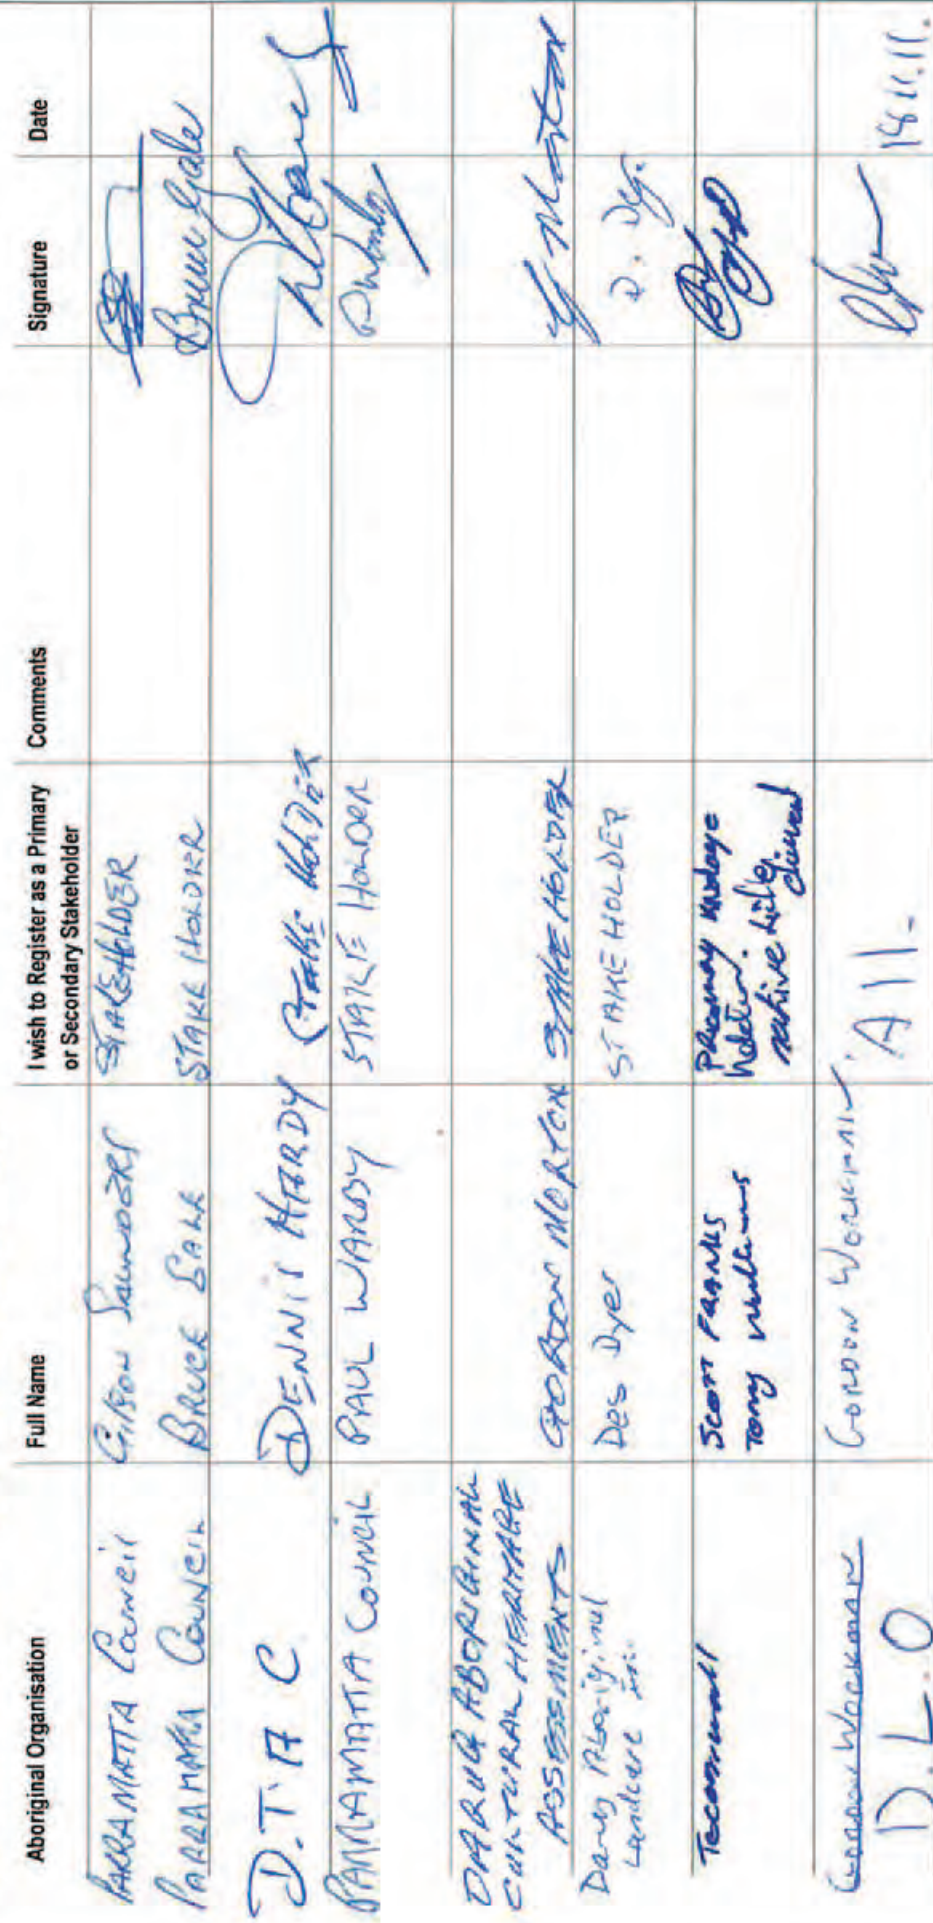 Aboriginal Organisation Full Name I wish to Register as a Primary or Secondary Stakeholder Comments Signature Date
PARRAMATTA Council GIBSON SAUNDERS STAKEHOLDER
PARRAMATTA COUNCIL BRUCE GALE STAKE HOLDER Bruce Gale
D.T.A C DENNIS HARDY Stake HolDER
PARRAMATTA COUNCIL PAUL WARBY STAKE HOLDER
DARUG ABORIGINAL
CULTURAL HERITAGE
ASSESSMENTS GORDON MORTON STAKE HOLDER
Darug Aboriginal Des Dyer STAKEHOLDER
Landcare Inc.
Tocomwall SCOTT FRANKS Primary
Tony Williams holder.
native title
GORDON WORKMAN GORDON WORKMAN All. 18.11.11.
D.L.O